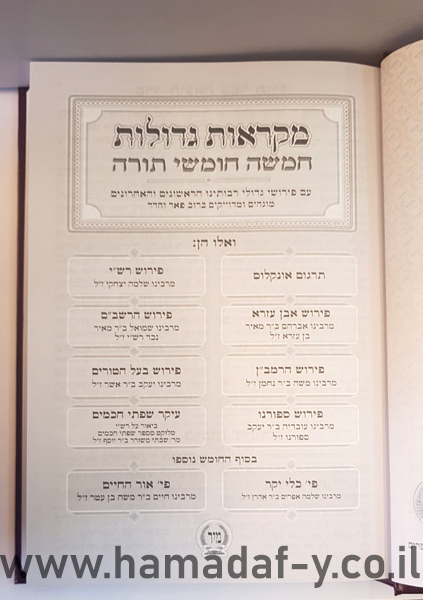 מקראות גדולות
חמשה חומשי תורה
עם פירושי גדולי רבותינו הראשונים והאחרונים
מוגהים ומדוייקים ברוב פאר והדר
ואלו הן:
תרגום אונקלוס
פירוש רש"י
מרבינו שלמה יצחקי ז"ל
פירוש אבן עזרא
מרבינו אברהם ב"ר מאיר
בן עזרא ז"ל
פירוש הרשב"ם
מרבינו שמואל ב"ר מאיר
נכד רש"י ז"ל
פירוש הרמב"ן
מרבינו משה ב"ר נחמן ז"ל
פירוש בעל הטורים
מרבינו יעקב ב"ר אשר ז"ל
פירוש ספורנו
מרבינו עובדיה ב"ר יעקב
ספורנו ז"ל
עיקר שפתי חכמים
ביאור על רש"י
מלוקט מספר שפתי חכמים
מר' שבתי משורר ב"ר יוסף ז"ל
בסוף החומש נוספו
פי' כלי יקר
מרבינו שלמה אפרים ב"ר אהרן ז"ל
פי' אור החיים
מרבינו חיים ב"ר משה בן עטר ז"ל
מיר
www.hamadaf-y.co.il